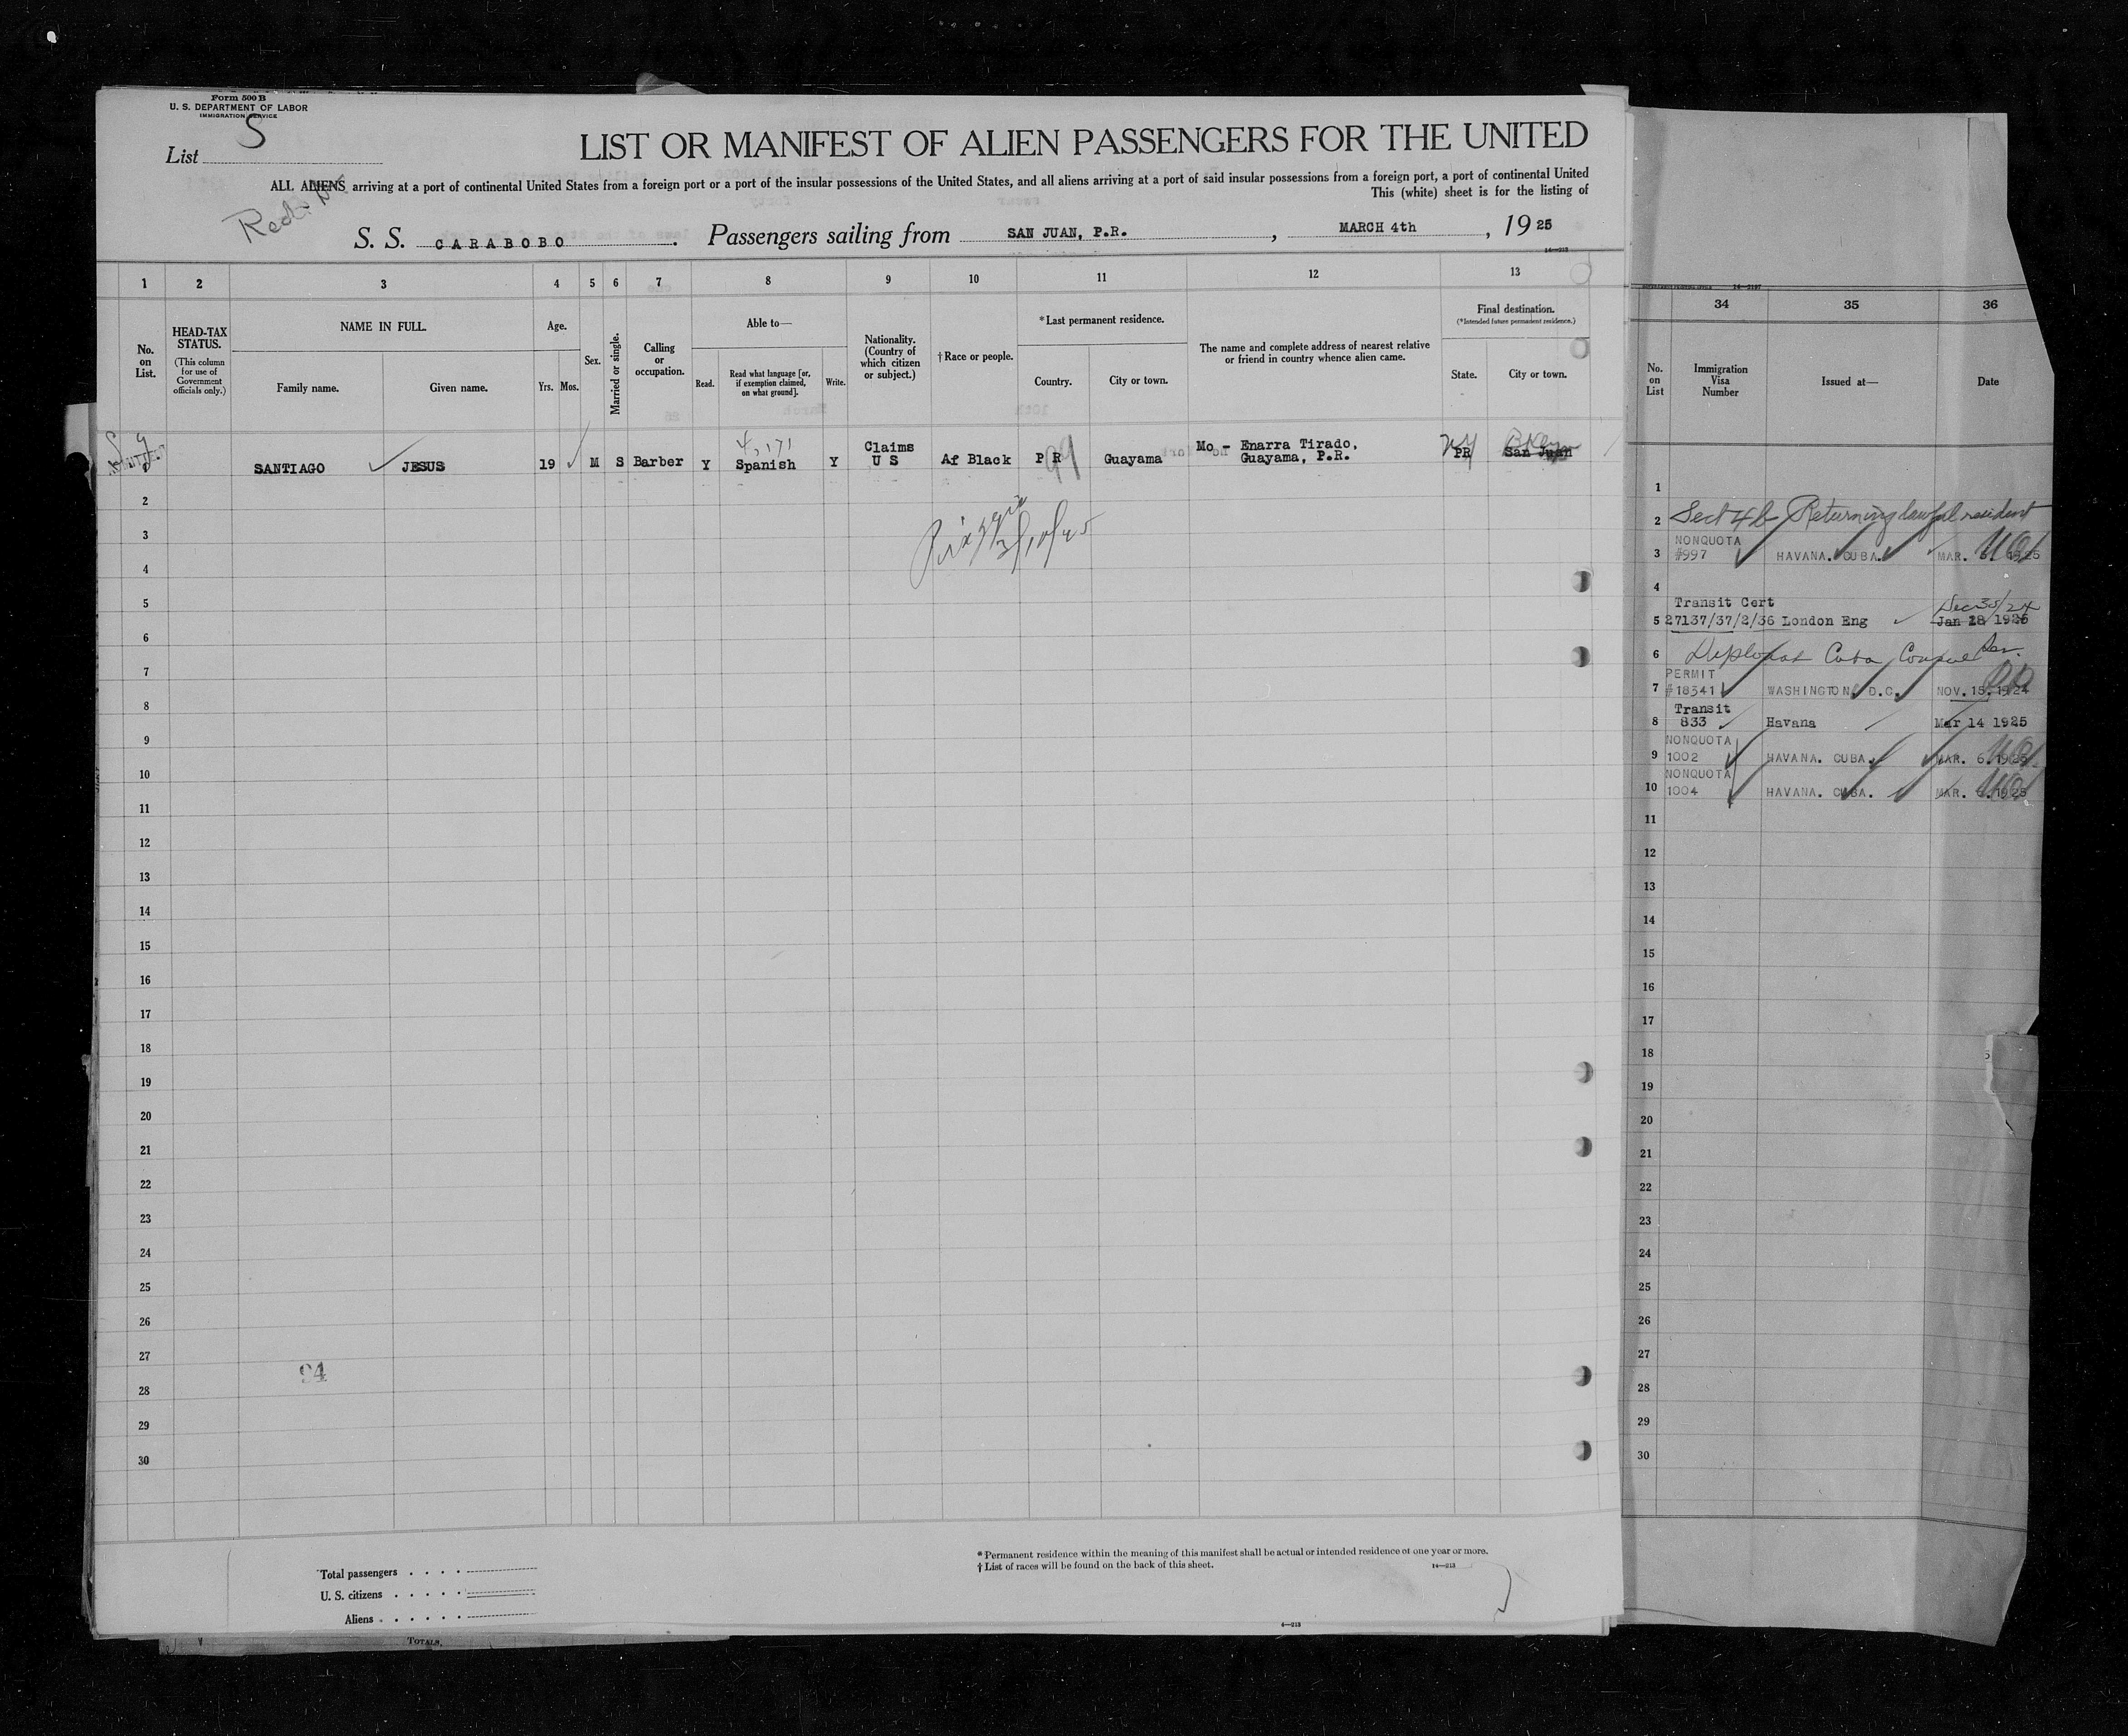 Form 500 B
U. S. DEPARTMENT OF LABOR
IMMIGRATION SERVICE
List S
LIST OR MANIFEST OF ALIEN PASSENGERS FOR THE UNITED
ALL ALIENS arriving at a port of continental United States from a foreign port or a port of the insular possessions of the United States, and all aliens arriving at a port of said insular possessions from a foreign port, a port of continental United
This (white) sheet is for the listing of
S. S. CARABOBO. Passengers sailing from SAN JUAN, P.R., MARCH 4th, 1925
14—213
1 2 3 4 5 6 7 8 9 10 11 12 13
No. on List.
HEAD-TAX STATUS.
(This column for use of Government officials only.)
NAME IN FULL.
Family name. Given name.
Age.
Yrs. Mos.
Sex.
Married or single.
Calling or occupation.
Able to—
Read. Read what language [or, if exemption claimed, on what ground]. Write.
Nationality. (Country of which citizen or subject.)
†Race or people.
*Last permanent residence.
Country. City or town.
The name and complete address of nearest relative or friend in country whence alien came.
Final destination.
(*Intended future permanent residence.)
State. City or town.
SANTIAGO JESUS 19 M S Barber Y Spanish Y Claims U S Af Black P R Guayama Mo - Enarra Tirado, Guayama, P.R. NY PR Bklyn San Juan
4,171
99
3/10/25
2
3
4
5
6
7
8
9
10
11
12
13
14
15
16
17
18
19
20
21
22
23
24
25
26
27
94
28
29
30
Total passengers
U. S. citizens
Aliens
*Permanent residence within the meaning of this manifest shall be actual or intended residence of one year or more.
†List of races will be found on the back of this sheet.
14—213
TOTALS,
34 35 36
No. on List
Immigration Visa Number
Issued at—
Date
1
2 Sect 4b Returning lawful resident
3 NONQUOTA #997 HAVANA. CUBA. MAR. 1925
4
5 Transit Cert 27137/37/2/36 London Eng Dec 30/24 Jan 28 1925
6 Diplomat Cuba Consul
7 PERMIT #18541 WASHINGTON. D.C. NOV. 15. 1924
8 Transit 833 Havana Mar 14 1925
9 NONQUOTA 1002 HAVANA. CUBA. MAR. 6. 1925
10 NONQUOTA 1004 HAVANA. CUBA. MAR. 6. 1925
11
12
13
14
15
16
17
18
19
20
21
22
23
24
25
26
27
28
29
30